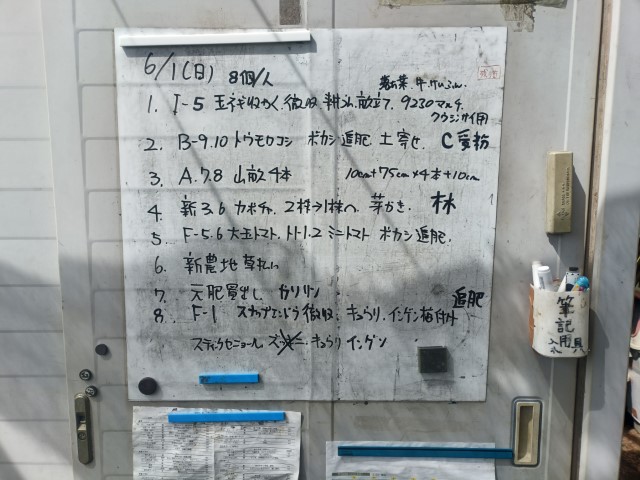 6/1(日) 8個/人
1. I-5 玉ネギ収かく、撤収、耕うん、畝立て、9230マルチ
2. B-9.10 トウモロコシ ボカシ追肥 土寄せ C受粉
3. A.7.8 山畝4本 10cm+75cm×4本+10cm
4. 新3.6 カボチャ、2株→1株へ、芽かき、林
5. F-5.6 大玉トマト、トト1.2 ミニトマト ボカシ追肥、
6. 新農地 草払い
7. 元肥買出し カリリン 追肥
8. F-1 スナップエンドウ撤収、キュウリ、インゲン植付け
スティックセニョール キュウリ インゲン
筆記用具入れ